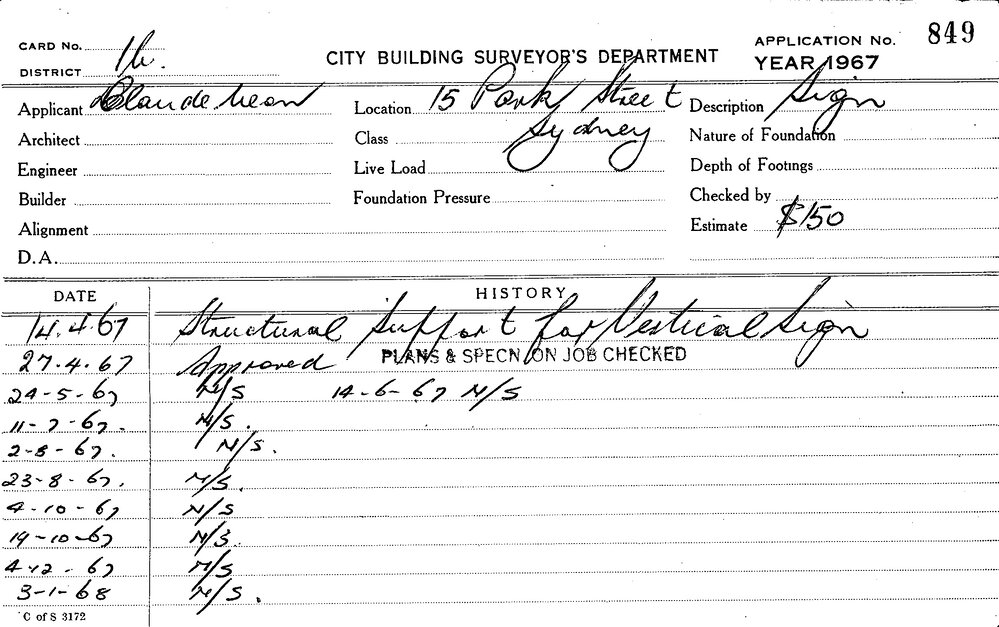 CARD No. 849
DISTRICT 1b. CITY BUILDING SURVEYOR'S DEPARTMENT APPLICATION No. YEAR 1967
Applicant Claude neon Location 15 Park Street Description Sign
Architect Class Sydney Nature of Foundation
Engineer Live Load Depth of Footings
Builder Foundation Pressure Checked by
Alignment Estimate $150
D.A.
DATE HISTORY
14.4.67 Structural Support for Vertical Sign
27.4.67 Approved PLANS & SPECN. ON JOB CHECKED
24-5-67 N/S 14-6-67 N/S
11-7-67. N/S.
2-8-67. N/S.
23-8-67. N/S.
4-10-67 N/S
19-10-67 N/S.
4-12-67 N/S
3-1-68 N/S.
C of S 3172